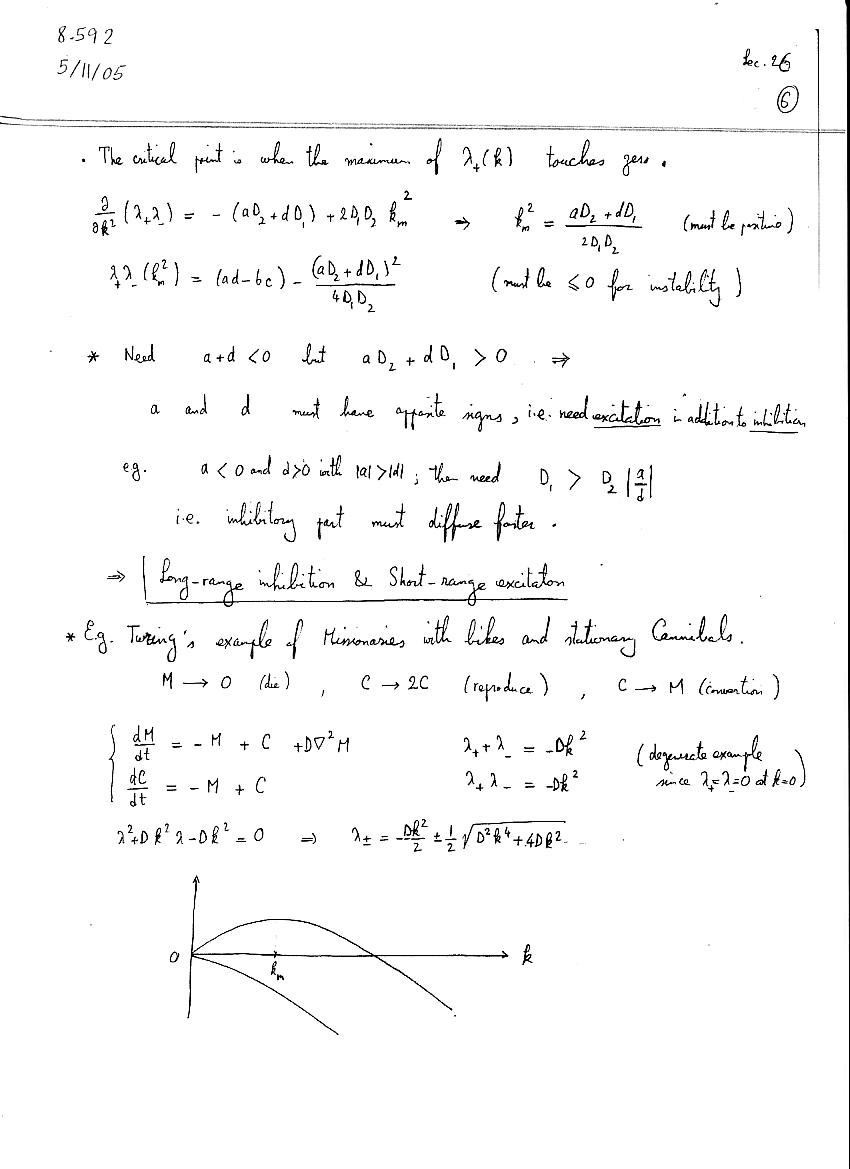 8-592
5/11/05
Lec. 26
⑥
. The critical point is when the maximum of λ₊(k) touches zero.
∂/∂k² (λ₊λ₋) = - (aD₂ + dD₁) + 2D₁D₂ k²ₘ ⇒ k²ₘ = (aD₂ + dD₁)/(2D₁D₂) (must be positive)
λ₊λ₋(k²ₘ) = (ad-bc) - (aD₂ + dD₁)²/(4D₁D₂) (must be ≤ 0 for instability)
* Need a+d < 0 but aD₂ + dD₁ > 0 ⇒
a and d must have opposite signs, i.e. need excitation in addition to inhibition
eg. a < 0 and d > 0 with |a| > |d| ; then need D₁ > D₂ |a/d|
i.e. inhibitory part must diffuse faster.
⇒ Long-range inhibition & Short-range excitaton
* E.g. Turing's example of Missionaries with bikes and stationary Cannibals.
M → 0 (die) , C → 2C (reproduce) , C → M (convertion)
dM/dt = - M + C + D∇²M λ₊ + λ₋ = -Dk² (degenerate example
dC/dt = - M + C λ₊ λ₋ = -Dk² since λ₊=λ₋=0 at k=0)
λ² + Dk²λ - Dk² = 0 ⇒ λ± = -Dk²/2 ± 1/2 √(D²k⁴ + 4Dk²)
0 kₘ k